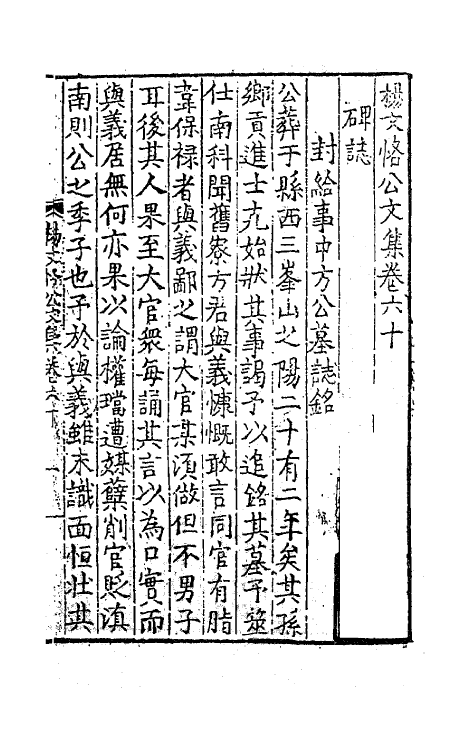 楊文恪公文集卷六十
碑誌
封給事中方公墓誌銘
公葬于縣西三峯山之陽二十有二年矣其孫
鄉貢進士尣始狀其事謁予以追銘其墓予筮
仕南科聞舊寮方君與義慷慨敢言同官有脂
韋保禄者與義鄙之謂大官某須做但不男子
耳後其人果至大官衆每誦其言以為口實而
與義居無何亦果以論權璫遭媒蘖削官貶滇
南則公之季子也予於與義雖未識面恒壯其
楊文恪公文集卷六十 一